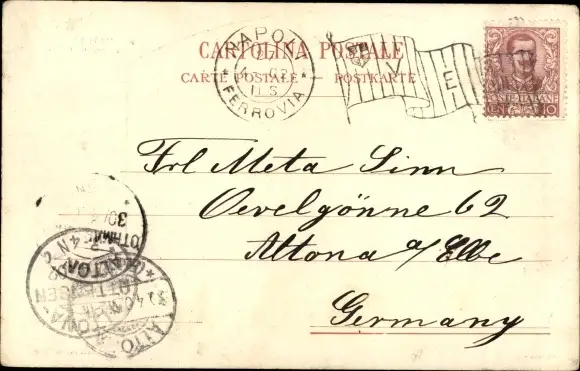 CARTOLINA POSTALE
CARTE POSTALE — POSTKARTE
NAPOLI
FERROVIA
VEI
10
Frl Meta Sinn
Oevelgönne 62
Altona a/Elbe
Germany
ALTONA